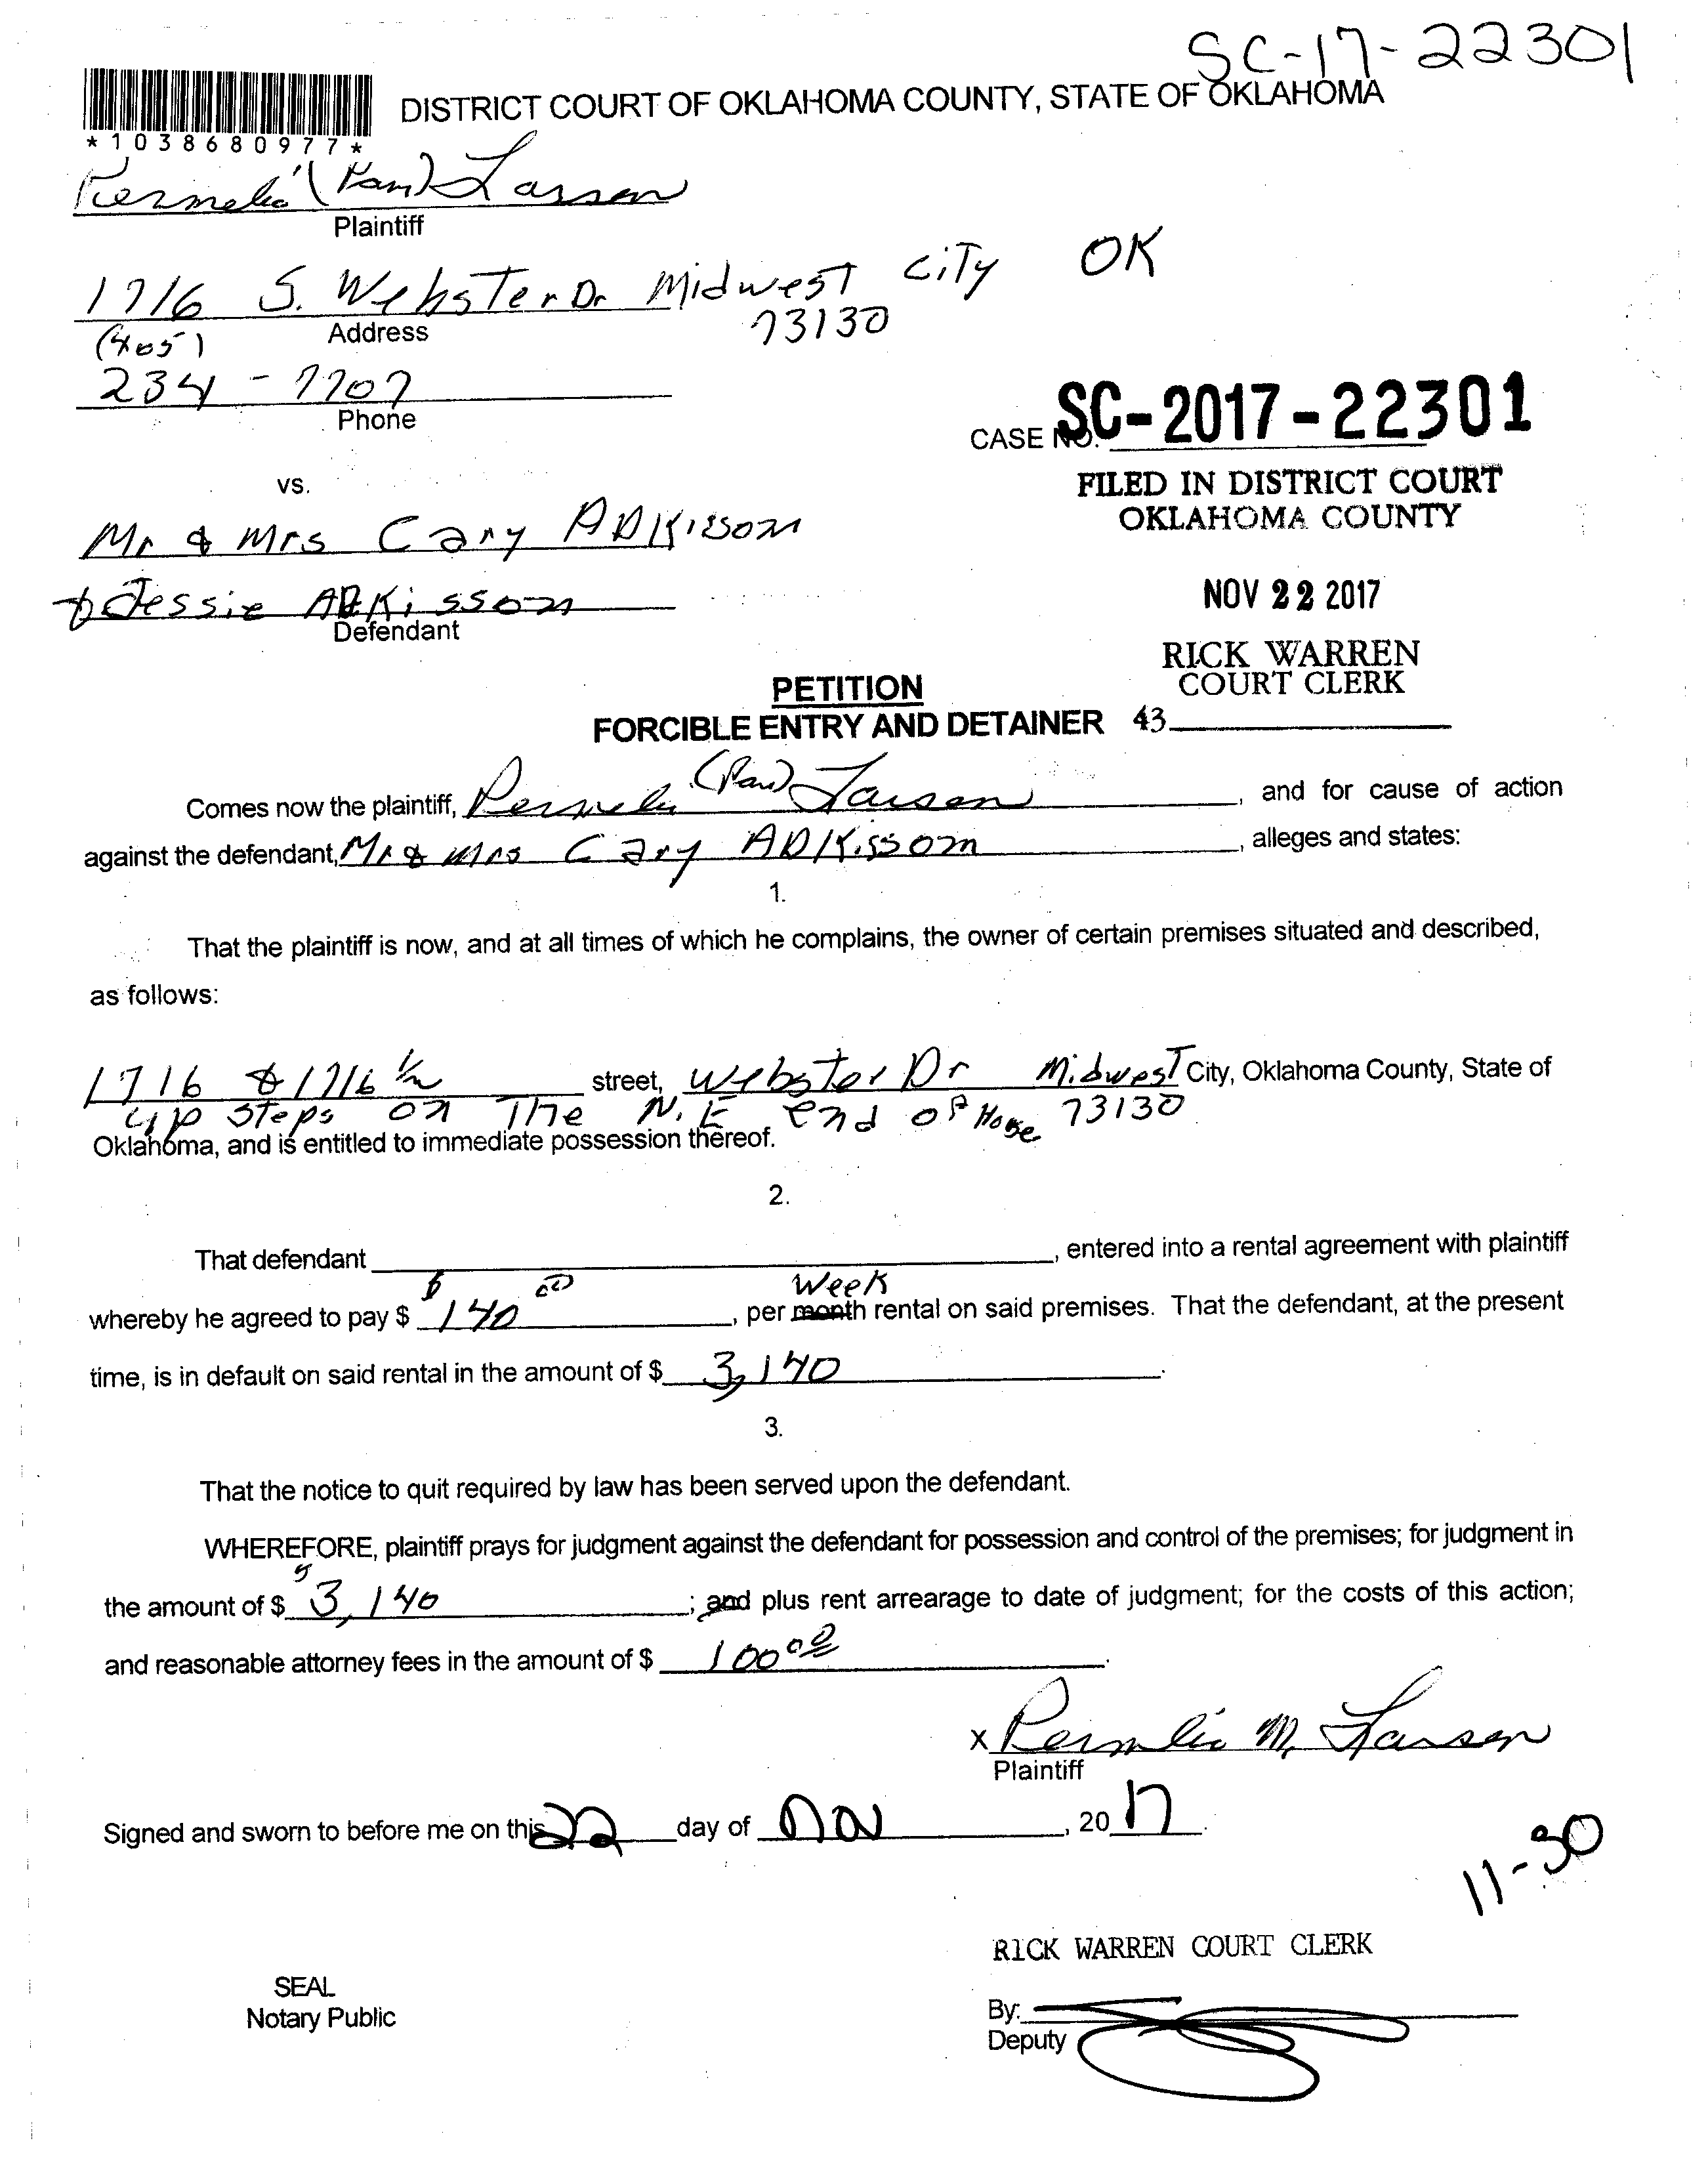 SC-17-22301
DISTRICT COURT OF OKLAHOMA COUNTY, STATE OF OKLAHOMA
*1038680977*
(Pam) Larsen
Plaintiff
1716 S. Webster Dr Midwest City OK
73130
Address
(405)
234-7707
Phone
CASE NO. SC-2017-22301
vs.
FILED IN DISTRICT COURT
OKLAHOMA COUNTY
Mr & Mrs Cary ADKisson
& Jessie ADKisson
Defendant
NOV 22 2017
RICK WARREN
COURT CLERK
PETITION
FORCIBLE ENTRY AND DETAINER 43
Comes now the plaintiff, (Pam) Larsen, and for cause of action
against the defendant, Mr & Mrs Cary ADKisson, alleges and states:
1.
That the plaintiff is now, and at all times of which he complains, the owner of certain premises situated and described,
as follows:
1716 & 1716 1/2 street, Webster Dr Midwest City, Oklahoma County, State of
up steps on The N.E end of House 73130
Oklahoma, and is entitled to immediate possession thereof.
2.
That defendant , entered into a rental agreement with plaintiff
Week
whereby he agreed to pay $ $140 00, per month rental on said premises. That the defendant, at the present
time, is in default on said rental in the amount of $ 3,140.
3.
That the notice to quit required by law has been served upon the defendant.
WHEREFORE, plaintiff prays for judgment against the defendant for possession and control of the premises; for judgment in
the amount of $ 3,140; and plus rent arrearage to date of judgment; for the costs of this action;
and reasonable attorney fees in the amount of $ 100 00.
x Permelia M. Larsen
Plaintiff
Signed and sworn to before me on this 22 day of Nov, 20 17.
11-30
RICK WARREN COURT CLERK
SEAL
Notary Public
By:
Deputy